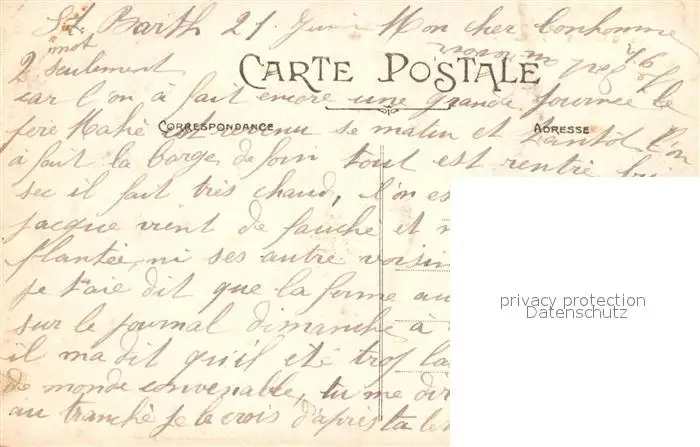 St. Barth 21 Juin Mon cher bonhomme
2 mot seulement
CARTE POSTALE
car l'on à fait encore une grande journée le
CORRESPONDANCE
ADRESSE
père Mahé est revenu se matin et tantôt l'on
à fait la barge de foin tout est rentré
sec il fait très chaud, l'on es
jacque vient de fauché et
plantée, ni ses autre voisin
je t'aie dit que la ferme au
sur le journal dimanche à
il ma dit qu'il eté trop la
de monde convenable, tu me di
au tranché je le crois d'après ta le
privacy protection
Datenschutz